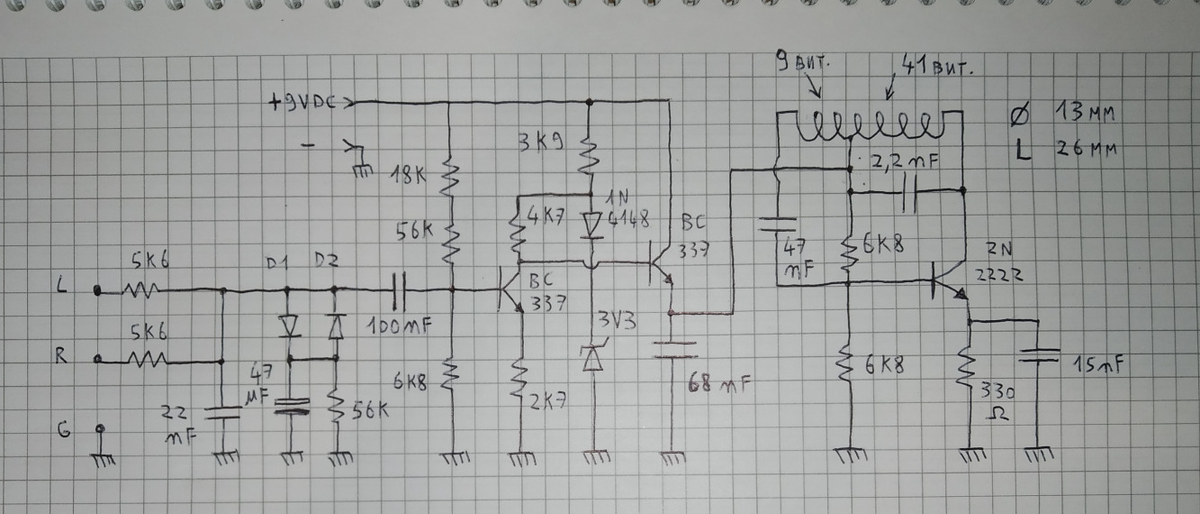 9 вит. 41 вит.
+9VDC
Ø 13 мм
-
3K9
2,2 nF
L 26 мм
18K
1N
4148
4K7
56K
BC
337
47
nF
6K8
2N
2222
5K6
D1 D2
L
BC
337
100nF
3V3
5K6
R
47
µF
6K8
68 nF
6K8
15nF
330
Ω
22
nF
56K
2K7
G